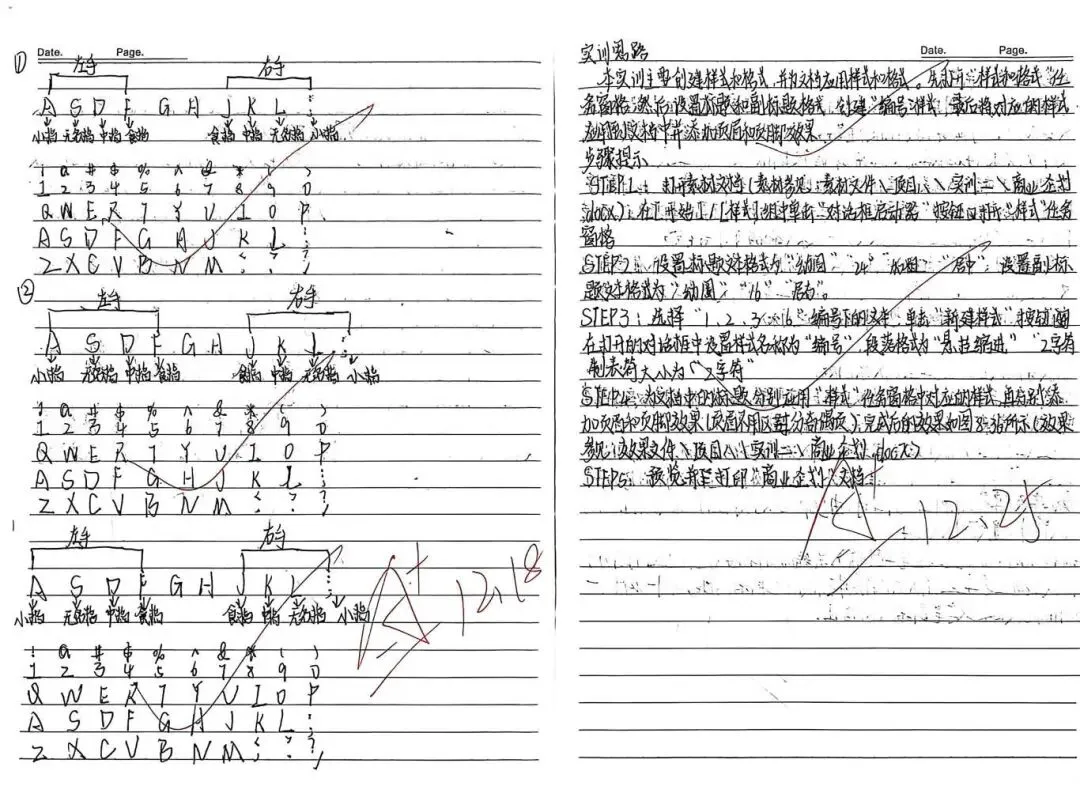 Date. Page.
① 左手 右手
A S D F G H J K L ;
小指 无名指 中指 食指 食指 中指 无名指 小指
! @ # $ % ^ & * ( )
1 2 3 4 5 6 7 8 9 0
Q W E R T Y U I O P
A S D F G H J K L ;
Z X C V B N M
② 左手 右手
A S D F G H J K L
小指 无名指 中指 食指 食指 中指 无名指 小指
! @ # $ % ^ & * ( )
1 2 3 4 5 6 7 8 9 0
Q W E R T Y U I O P
A S D F G H J K L ;
Z X C V B N M
左手 右手
A S D F G H J K L
小指 无名指 中指 食指 食指 中指 无名指 小指
! @ # $ % ^ & * ( )
1 2 3 4 5 6 7 8 9 0
Q W E R T Y U I O P
A S D F G H J K L ;
Z X C V B N M
A+ 12.18
Date. Page.
实训思路
本实训主要创建样式和格式,并为文档应用样式和格式。先打开“样式和格式”任
务窗格,然后设置标题和副标题格式,创建“编号”样式,最后将对应的样式
应用到文档中并添加页眉和页脚效果
步骤提示
STEP1: 打开素材文档(素材参见:素材文件\项目八\实训二\商业企划
.docx),在[开始]/[样式]组中单击“对话框启动器”按钮 打开“样式”任务
窗格
STEP2: 设置标题文本格式为“幼圆”“24”“加粗”“居中”,设置副标
题文本格式为“幼圆”“16”“居右”。
STEP3: 选择“1、2、3、16”编号下的文本,单击“新建样式”按钮
在打开的对话框中设置样式名称为“编号”,段落格式为“悬挂缩进”“2字符
制表符大小为“2字符”
STEP4: 为文档中的标题分别应用“样式”任务窗格中对应的样式,再分别添
加页眉和页脚效果(页眉不用区分奇偶页),完成后的效果如图8-36所示(效果
参见:效果文件\项目八\实训二\商业企划.docx)
STEP5: 预览并打印“商业企划”文档
A+ 12.25